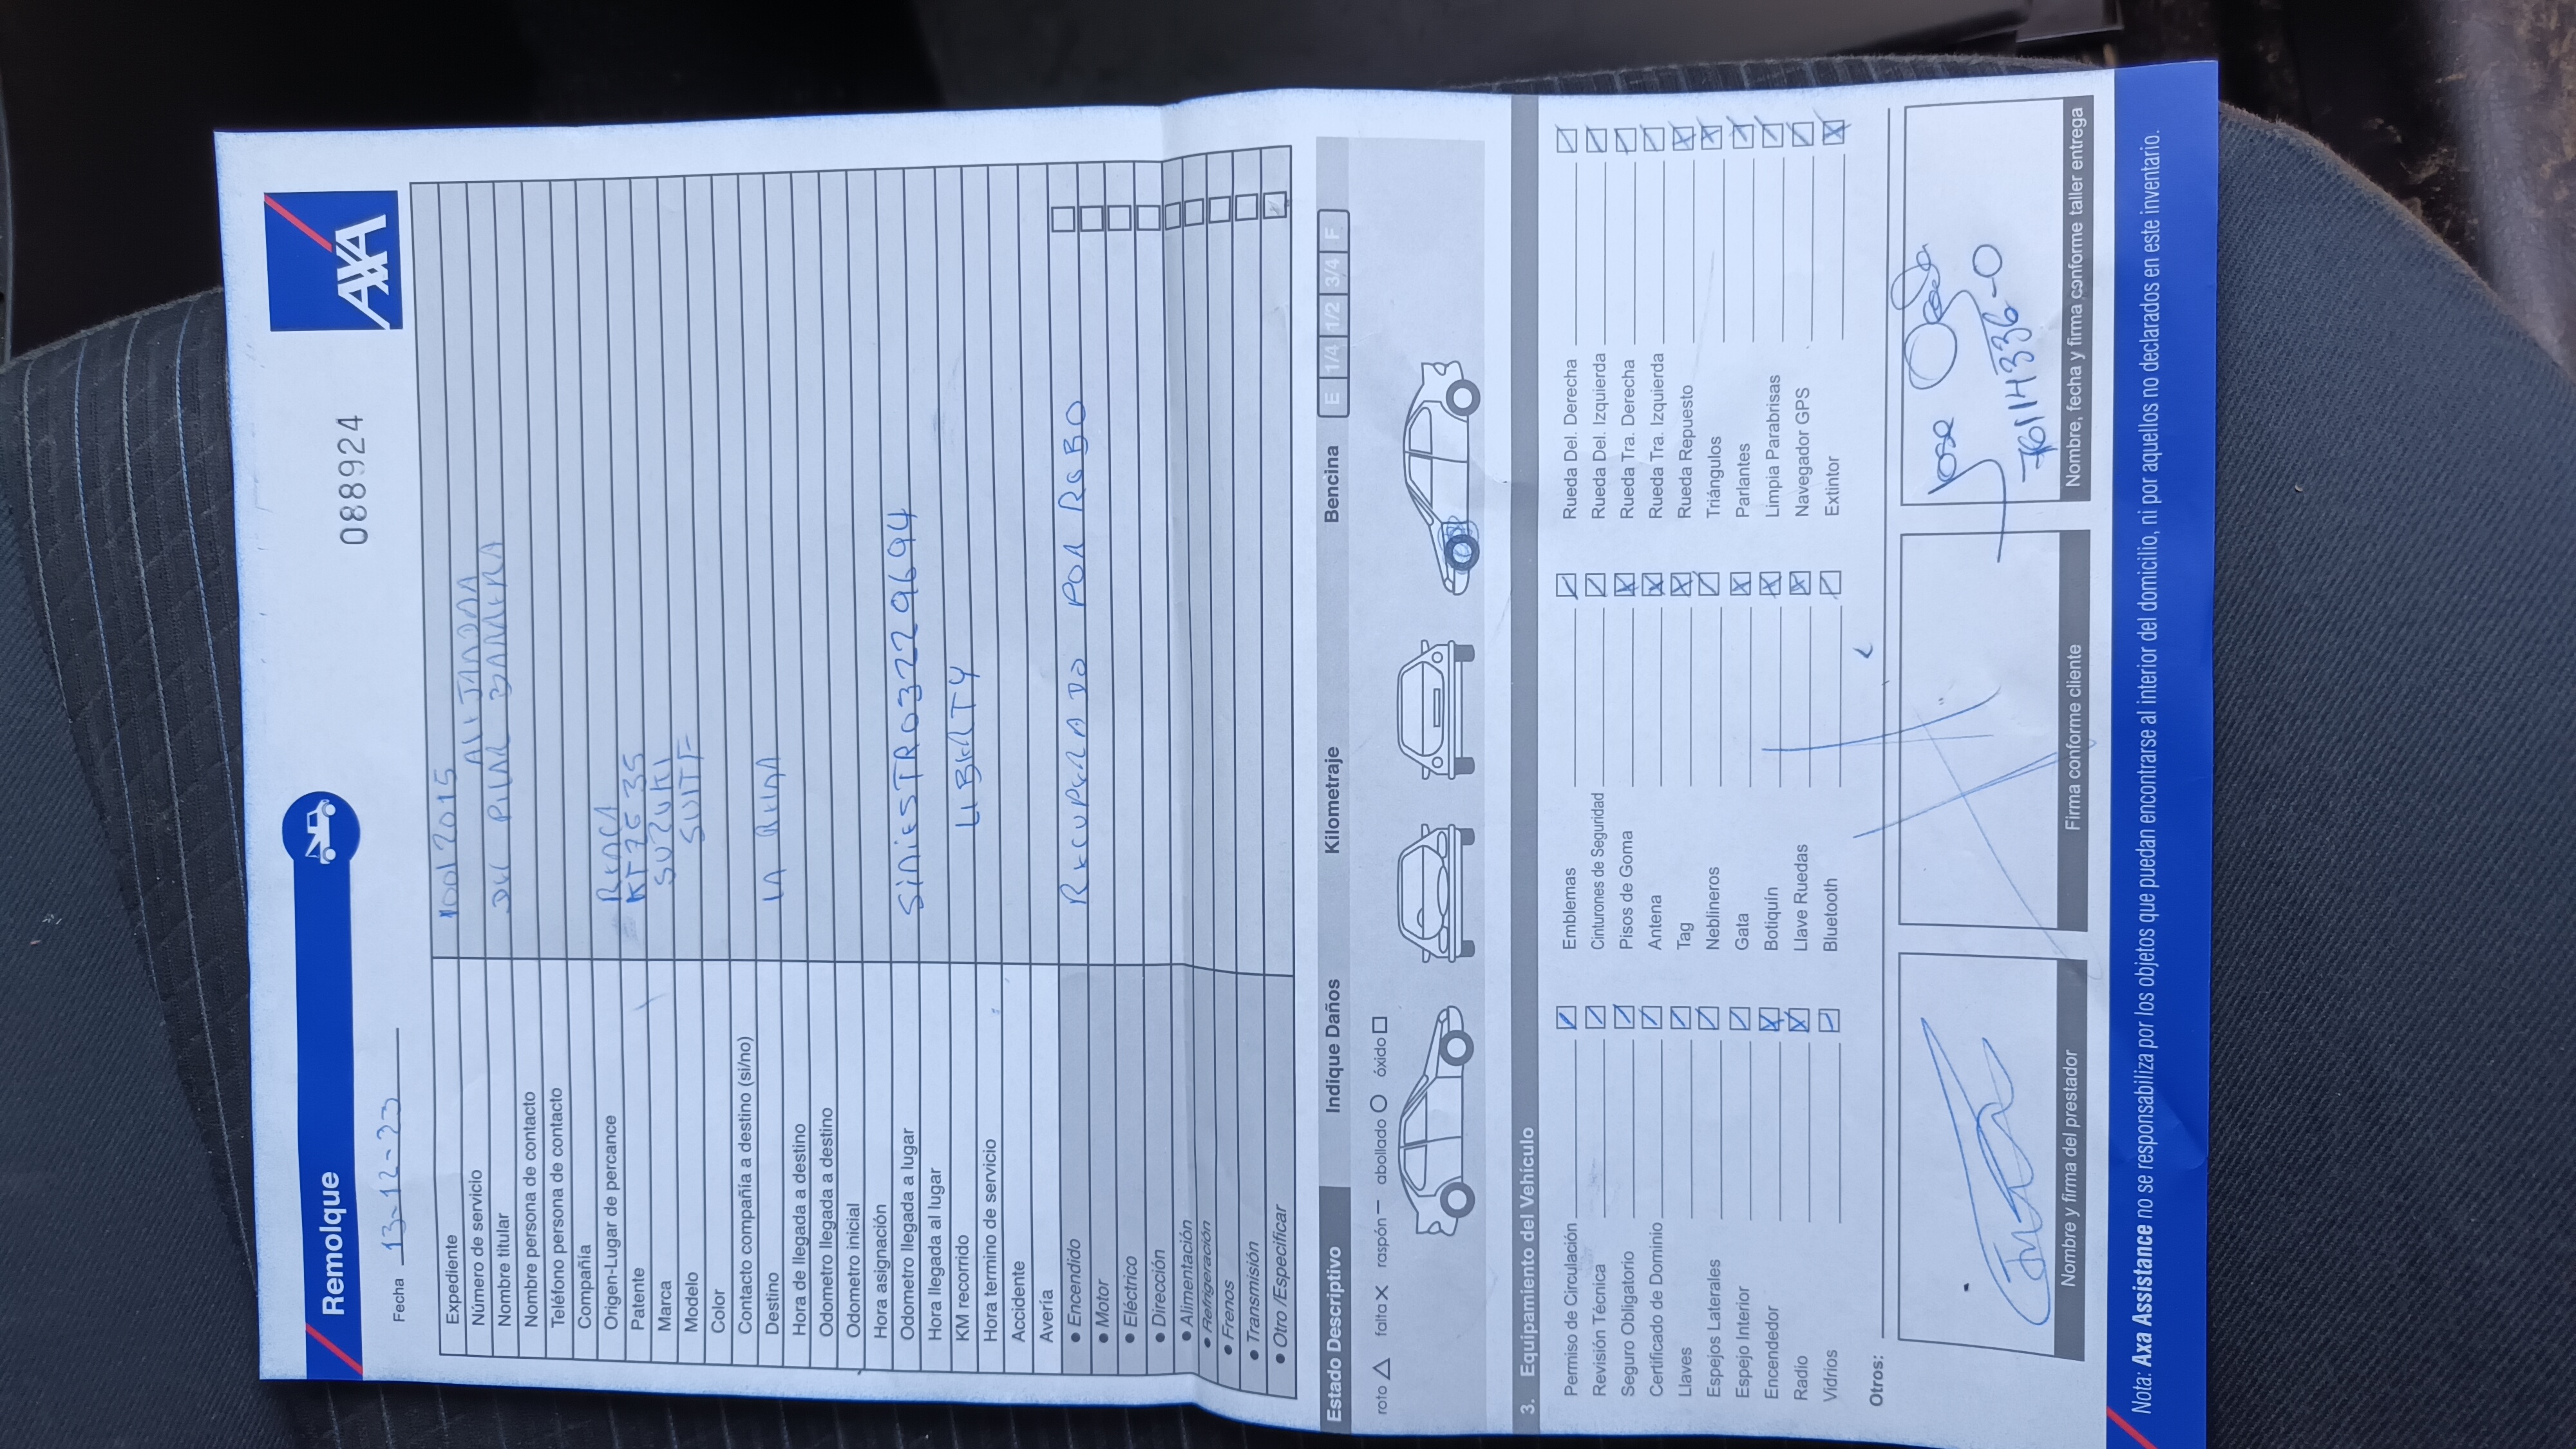 Remolque
AXA
088924
Fecha 13-12-23
Expediente 10012015
Número de servicio
Nombre titular DEL PILAR BARRERA
Nombre persona de contacto
Teléfono persona de contacto
Compañía
Origen-Lugar de percance
Patente
Marca SUZUKI
Modelo
Color
Contacto compañía a destino (si/no)
Destino LA REINA
Hora de llegada a destino
Odometro llegada a destino
Odometro inicial
Hora asignación
Odometro llegada a lugar SINIESTRO 3229694
Hora llegada al lugar
KM recorrido LIBERTY
Hora termino de servicio
Accidente
Avería
• Encendido RECUPERADO POR ROBO
• Motor
• Eléctrico
• Dirección
• Alimentación
• Refrigeración
• Frenos
• Transmisión
• Otro /Especificar
Estado Descriptivo Indique Daños Kilometraje Bencina E 1/4 1/2 3/4 F
roto △ falta X raspón — abollado ○ óxido □
3. Equipamiento del Vehículo
Permiso de Circulación Emblemas Rueda Del. Derecha
Revisión Técnica Cinturones de Seguridad Rueda Del. Izquierda
Seguro Obligatorio Pisos de Goma Rueda Tra. Derecha
Certificado de Dominio Antena Rueda Tra. Izquierda
Llaves Tag Rueda Repuesto
Espejos Laterales Neblineros Triángulos
Espejo Interior Gata Parlantes
Encendedor Botiquín Limpia Parabrisas
Radio Llave Ruedas Navegador GPS
Vidrios Bluetooth Extintor
Otros:
Jose
Nombre y firma del prestador
Firma conforme cliente
Nombre, fecha y firma conforme taller entrega
Nota: Axa Assistance no se responsabiliza por los objetos que puedan encontrarse al interior del domicilio, ni por aquellos no declarados en este inventario.